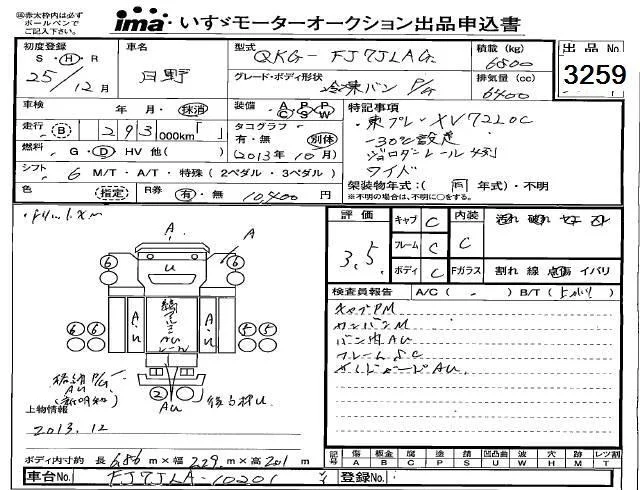 ※赤太枠内は必ず
ボールペンで
ご記入下さい。
ima いすゞモーターオークション出品申込書
初度登録 S・H・R 25/12月
車名 日野
型式 QKG-FJ7JLAG
グレード・ボディ形状 冷凍バン P/G
積載(kg) 6800
排気量(cc) 6400
出品No. 3259
車検 年 月・抹消
装備 A P P C S W
特記事項
・東プレ XV722DC
-30℃設定
ジョロダーレール 4列
ワイド
走行 B 293 000km「 」
タコグラフ 有・無 別体
(2013年10月)
燃料 G・D・HV 他( )
シフト 6 M/T・A/T・特殊(2ペダル・3ペダル)
色 (指定) R券 有・無 10,400円
架装物年式:(同 年式)・不明
※不明の場合は、不明に○をする。
評価 3.5
キャブ C
フレーム C
ボディ C
内装 C
汚れ 破れ
Fガラス 割れ 線 点傷 イバリ
検査員報告 A/C( - ) B/T(
キャブPM
カンバンM
バン内AU
フレームSC
サイドガードAU
A
A
U
6
6
A・U
A・U
縞アルミ
AU
レール
6 6
5 5
格納P/G
AU
2
AU
上物情報
2013.12
ボディ内寸約 長 686m×幅 229m×高 201m
記号 傷 A 板金 B 腐 C 塗 P 請 S 凹凸曲 U 波 W 穴 H 跡 M レツ割 T
車台No. FJ7JLA-10201
登録No.